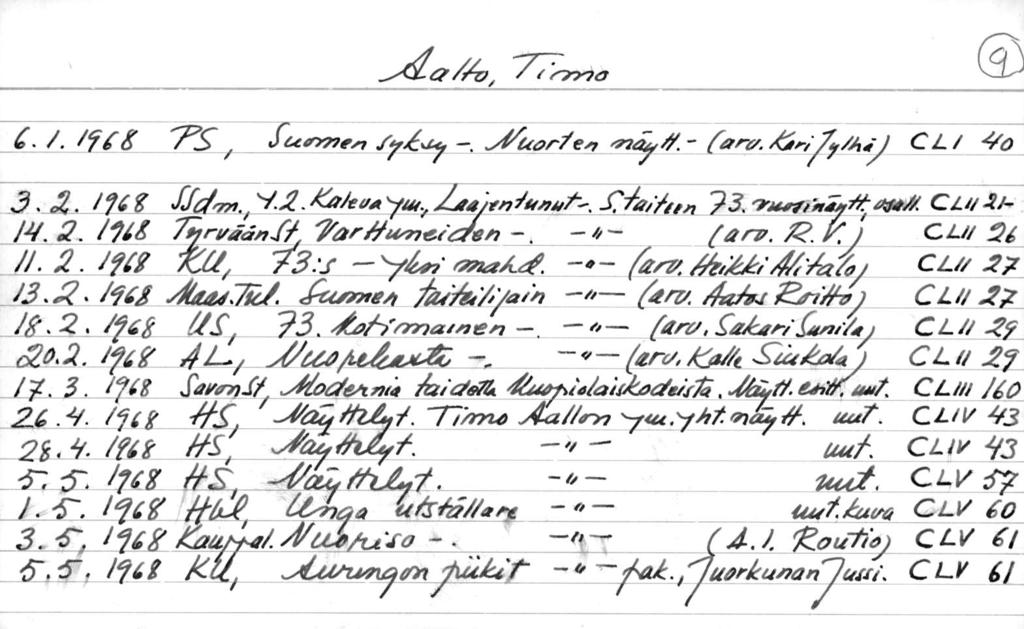 Aalto, Timo 9
6.1.1968 PS, Suomen syksy -. Nuorten näytt.- (arv. Kari Jylhä) CLI 40
3.2.1968 SSdm., Y.2. Kaleva ym., Laajentunut -. S.taiteen 73. vuosinäytt. osall. CLII 21-
14.2.1968 TyrväänSt, Varttuneiden -. -"- (arv. R.V.) CLII 26
11.2.1968 KU, 73:s - yksi mahd. -"- (arv. Heikki Alitalo) CLII 27
13.2.1968 Maas.Tul. Suomen taiteilijain -"- (arv. Aatos Roitto) CLII 27
18.2.1968 US, 73. Kotimainen -. -"- (arv. Sakari Sunila) CLII 29
20.2.1968 AL, -. -"- (arv. Kalle Siukola) CLII 29
17.3.1968 SavonSt, Modernia taidetta Kuopiolaiskodeista. Näytt. esitt. uut. CLIII 160
26.4.1968 HS, Näyttelyt. Timo Aallon ym. yht.näytt. uut. CLIV 43
28.4.1968 HS, Näyttelyt. -"- uut. CLIV 43
5.5.1968 HS, Näyttelyt. -"- uut. CLV 57
1.5.1968 Hbl, Unga utställare -"- uut.kuva CLV 60
3.5.1968 Kauppal. -. -"- (A.I. Routio) CLV 61
5.5.1968 KU, Auringon piikit -"- pak., Juorkunan Jussi. CLV 61